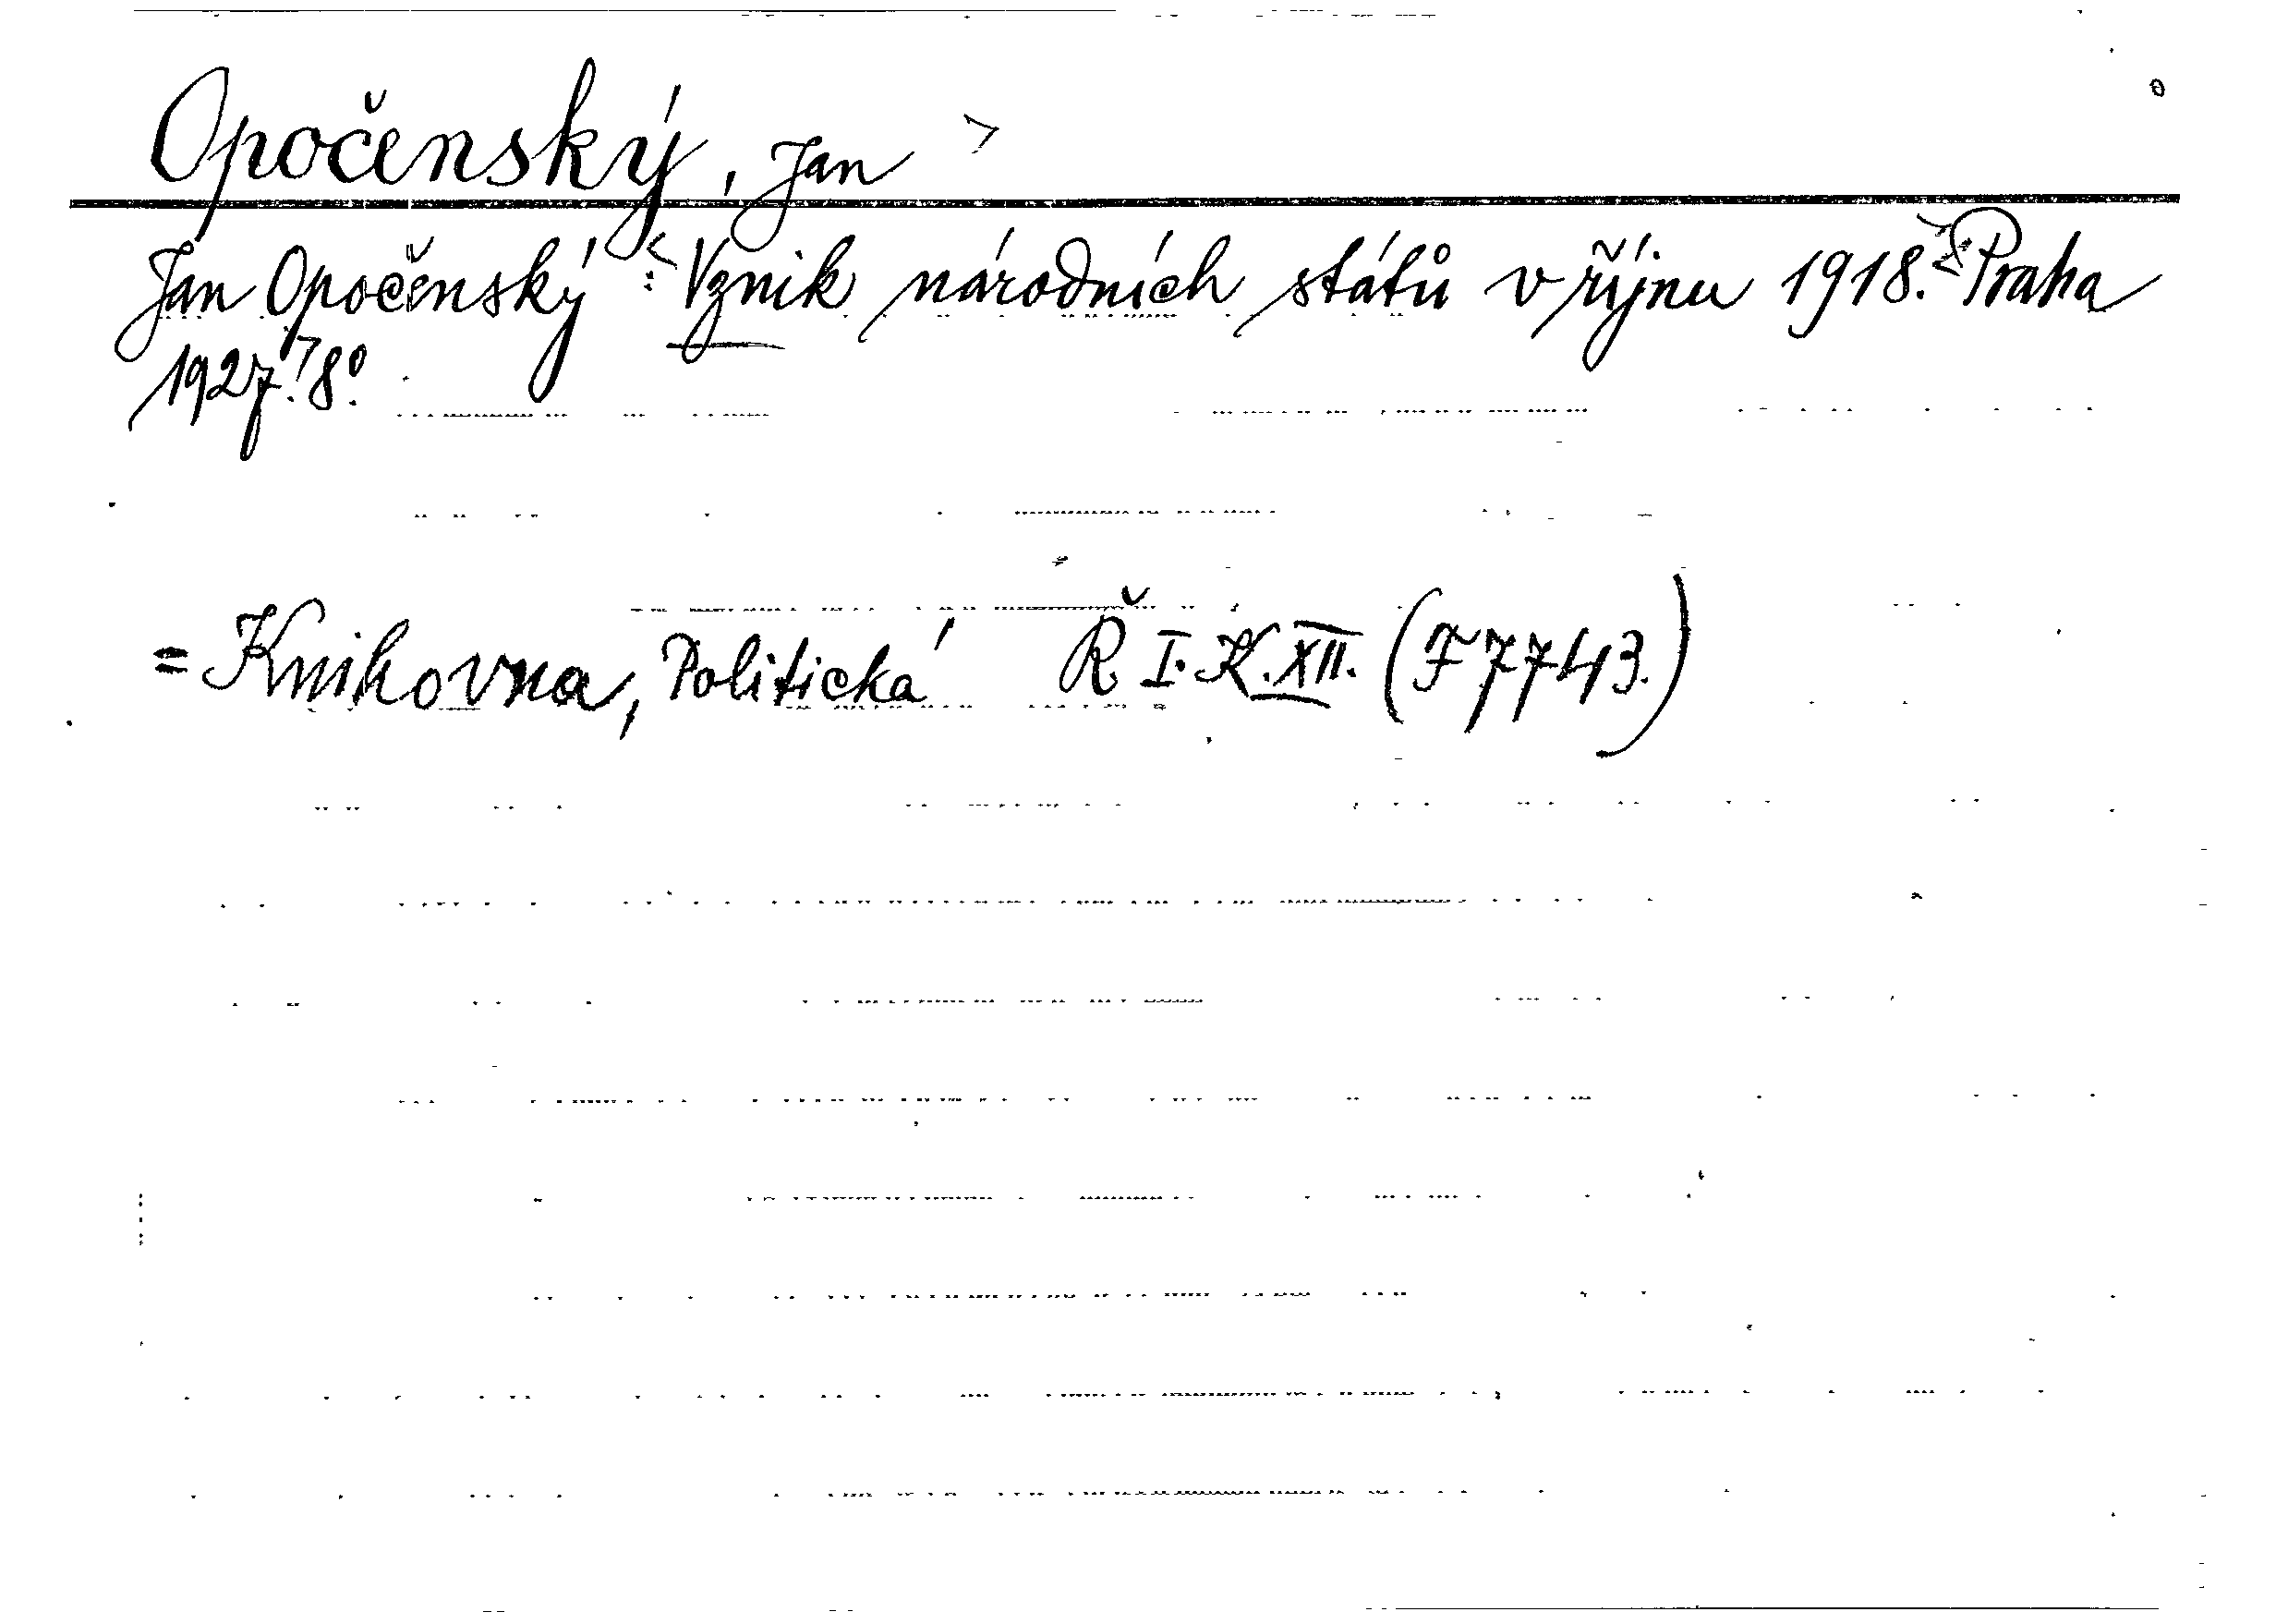 Opočenský, Jan
Jan Opočenský: Vznik národních států v říjnu 1918. Praha
1927. 8°.
= Knihovna, Politická Ř. I. K. XII. (F 7743.)